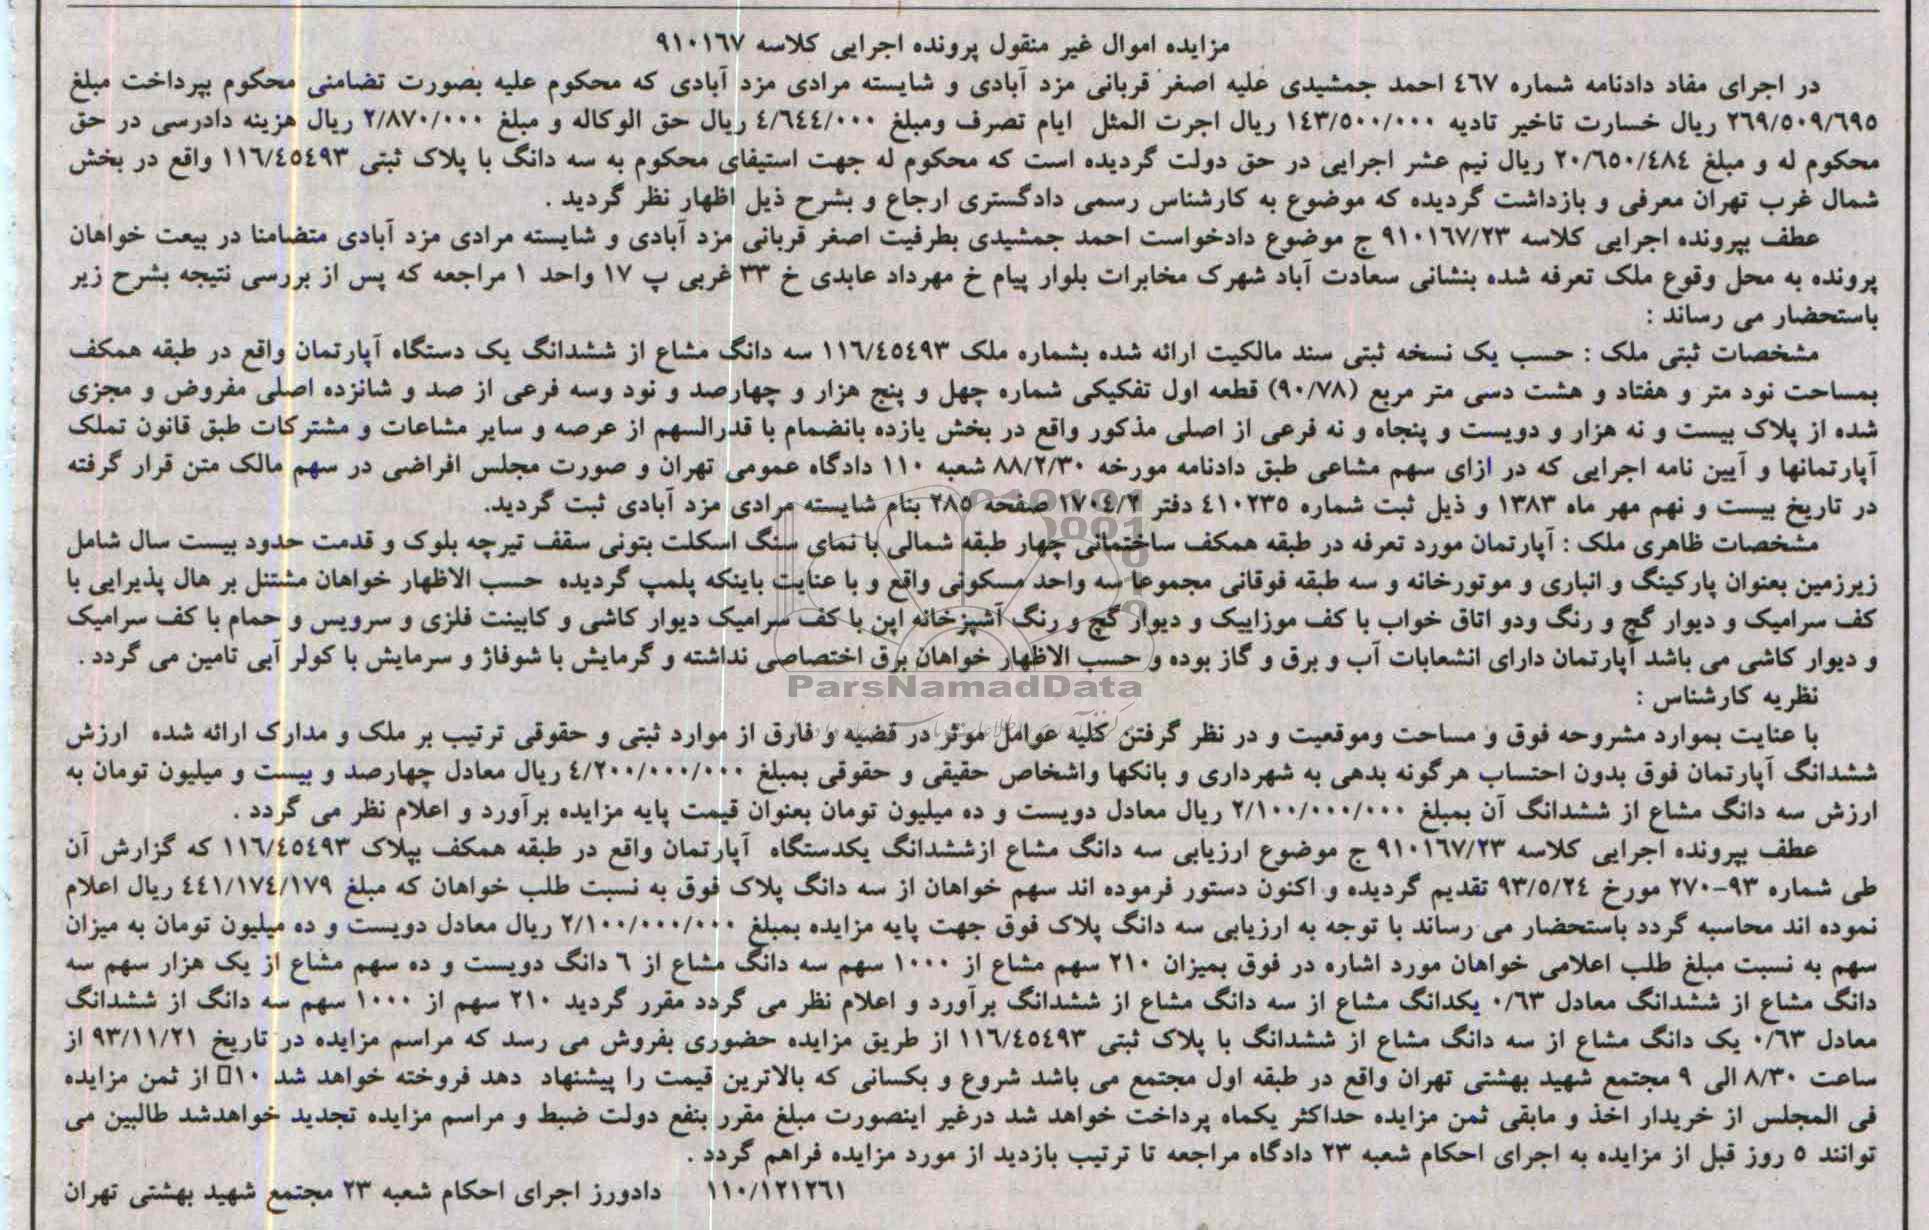 مزایده اموال غیر منقول پرونده اجرایی کلاسه ۹۱۰۱۶۷
در اجرای مفاد دادنامه شماره ٤٦٧ احمد جمشیدی علیه اصغر قربانی مزد آبادی و شایسته مرادی مزد آبادی که محکوم علیه بصورت تضامنی محکوم بپرداخت مبلغ
۲٦۹/۵۰۹/٦۹۵ ریال خسارت تاخیر تادیه ۱٤۳/۵۰۰/۰۰۰ ریال اجرت المثل ایام تصرف ومبلغ ٤/٦٤٤/۰۰۰ ریال حق الوکاله و مبلغ ۲/۸۷۰/۰۰۰ ریال هزینه دادرسی در حق
محکوم له و مبلغ ۲۰/٦۵۰/٤۸٤ ریال نیم عشر اجرایی در حق دولت گردیده است که محکوم له جهت استیفای محکوم به سه دانگ با پلاک ثبتی ۱۱٦/٤۵٤۹۳ واقع در بخش
شمال غرب تهران معرفی و بازداشت گردیده که موضوع به کارشناس رسمی دادگستری ارجاع و بشرح ذیل اظهار نظر گردید .
عطف بپرونده اجرایی کلاسه ۹۱۰۱٦۷/۲۳ ج موضوع دادخواست احمد جمشیدی بطرفیت اصغر قربانی مزد آبادی و شایسته مرادی مزد آبادی متضامنا در بیعت خواهان
پرونده به محل وقوع ملک تعرفه شده بنشانی سعادت آباد شهرک مخابرات بلوار پیام خ مهرداد عابدی خ ۳۳ غربی پ ۱۷ واحد ۱ مراجعه که پس از بررسی نتیجه بشرح زیر
باستحضار می رساند :
مشخصات ثبتی ملک : حسب یک نسخه ثبتی سند مالکیت ارائه شده بشماره ملک ۱۱٦/٤۵٤۹۳ سه دانگ مشاع از ششدانگ یک دستگاه آپارتمان واقع در طبقه همکف
بمساحت نود متر و هفتاد و هشت دسی متر مربع (۹۰/۷۸) قطعه اول تفکیکی شماره چهل و پنج هزار و چهارصد و نود وسه فرعی از صد و شانزده اصلی مفروض و مجزی
شده از پلاک بیست و نه هزار و دویست و پنجاه و نه فرعی از اصلی مذکور واقع در بخش یازده بانضمام با قدرالسهم از عرصه و سایر مشاعات و مشترکات طبق قانون تملک
آپارتمانها و آیین نامه اجرایی که در ازای سهم مشاعی طبق دادنامه مورخه ۸۸/۲/۳۰ شعبه ۱۱۰ دادگاه عمومی تهران و صورت مجلس افراضی در سهم مالک متن قرار گرفته
در تاریخ بیست و نهم مهر ماه ۱۳۸۳ و ذیل ثبت شماره ٤۱۰۲۳۵ دفتر ۱۷۰٤/۲ صفحه ۲۸۵ بنام شایسته مرادی مزد آبادی ثبت گردید.
مشخصات ظاهری ملک : آپارتمان مورد تعرفه در طبقه همکف ساختمانی چهار طبقه شمالی با نمای سنگ اسکلت بتونی سقف تیرچه بلوک و قدمت حدود بیست سال شامل
زیرزمین بعنوان پارکینگ و انباری و موتورخانه و سه طبقه فوقانی مجموعا سه واحد مسکونی واقع و با عنایت باینکه پلمپ گردیده حسب الاظهار خواهان مشتنل بر هال پذیرایی با
کف سرامیک و دیوار گچ و رنگ ودو اتاق خواب با کف موزاییک و دیوار گچ و رنگ آشپزخانه اپن با کف سرامیک دیوار کاشی و کابینت فلزی و سرویس و حمام با کف سرامیک
و دیوار کاشی می باشد آپارتمان دارای انشعابات آب و برق و گاز بوده و حسب الاظهار خواهان برق اختصاصی نداشته و گرمایش با شوفاژ و سرمایش با کولر آبی تامین می گردد .
ParsNamadData
نظریه کارشناس :
با عنایت بموارد مشروحه فوق و مساحت وموقعیت و در نظر گرفتن کلیه عوامل موثر در قضیه و فارق از موارد ثبتی و حقوقی ترتیب بر ملک و مدارک ارائه شده ارزش
ششدانگ آپارتمان فوق بدون احتساب هرگونه بدهی به شهرداری و بانکها واشخاص حقیقی و حقوقی بمبلغ ٤/۲۰۰/۰۰۰/۰۰۰ ریال معادل چهارصد و بیست و میلیون تومان به
ارزش سه دانگ مشاع از ششدانگ آن بمبلغ ۲/۱۰۰/۰۰۰/۰۰۰ ریال معادل دویست و ده میلیون تومان بعنوان قیمت پایه مزایده برآورد و اعلام نظر می گردد .
عطف بپرونده اجرایی کلاسه ۹۱۰۱٦۷/۲۳ ج موضوع ارزیابی سه دانگ مشاع ازششدانگ یکدستگاه آپارتمان واقع در طبقه همکف بپلاک ۱۱٦/٤۵٤۹۳ که گزارش آن
طی شماره ۹۳-۲۷۰ مورخ ۹۳/۵/۲٤ تقدیم گردیده و اکنون دستور فرموده اند سهم خواهان از سه دانگ پلاک فوق به نسبت طلب خواهان که مبلغ ٤٤۱/۱۷٤/۱۷۹ ریال اعلام
نموده اند محاسبه گردد باستحضار می رساند با توجه به ارزیابی سه دانگ پلاک فوق جهت پایه مزایده بمبلغ ۲/۱۰۰/۰۰۰/۰۰۰ ریال معادل دویست و ده میلیون تومان به میزان
سهم به نسبت مبلغ طلب اعلامی خواهان مورد اشاره در فوق بمیزان ۲۱۰ سهم مشاع از ۱۰۰۰ سهم سه دانگ مشاع از ٦ دانگ دویست و ده سهم مشاع از یک هزار سهم سه
دانگ مشاع از ششدانگ معادل ۰/٦۳ یکدانگ مشاع از سه دانگ مشاع از ششدانگ برآورد و اعلام نظر می گردد مقرر گردید ۲۱۰ سهم از ۱۰۰۰ سهم سه دانگ از ششدانگ
معادل ۰/٦۳ یک دانگ مشاع از سه دانگ مشاع از ششدانگ با پلاک ثبتی ۱۱٦/٤۵٤۹۳ از طریق مزایده حضوری بفروش می رسد که مراسم مزایده در تاریخ ۹۳/۱۱/۲۱ از
ساعت ۸/۳۰ الی ۹ مجتمع شهید بهشتی تهران واقع در طبقه اول مجتمع می باشد شروع و بکسانی که بالاترین قیمت را پیشنهاد دهد فروخته خواهد شد ۱۰□ از ثمن مزایده
فی المجلس از خریدار اخذ و مابقی ثمن مزایده حداکثر یکماه پرداخت خواهد شد درغیر اینصورت مبلغ مقرر بنفع دولت ضبط و مراسم مزایده تجدید خواهدشد طالبین می
توانند ۵ روز قبل از مزایده به اجرای احکام شعبه ۲۳ دادگاه مراجعه تا ترتیب بازدید از مورد مزایده فراهم گردد .
۱۱۰/۱۲۱۲٦۱ دادورز اجرای احکام شعبه ۲۳ مجتمع شهید بهشتی تهران